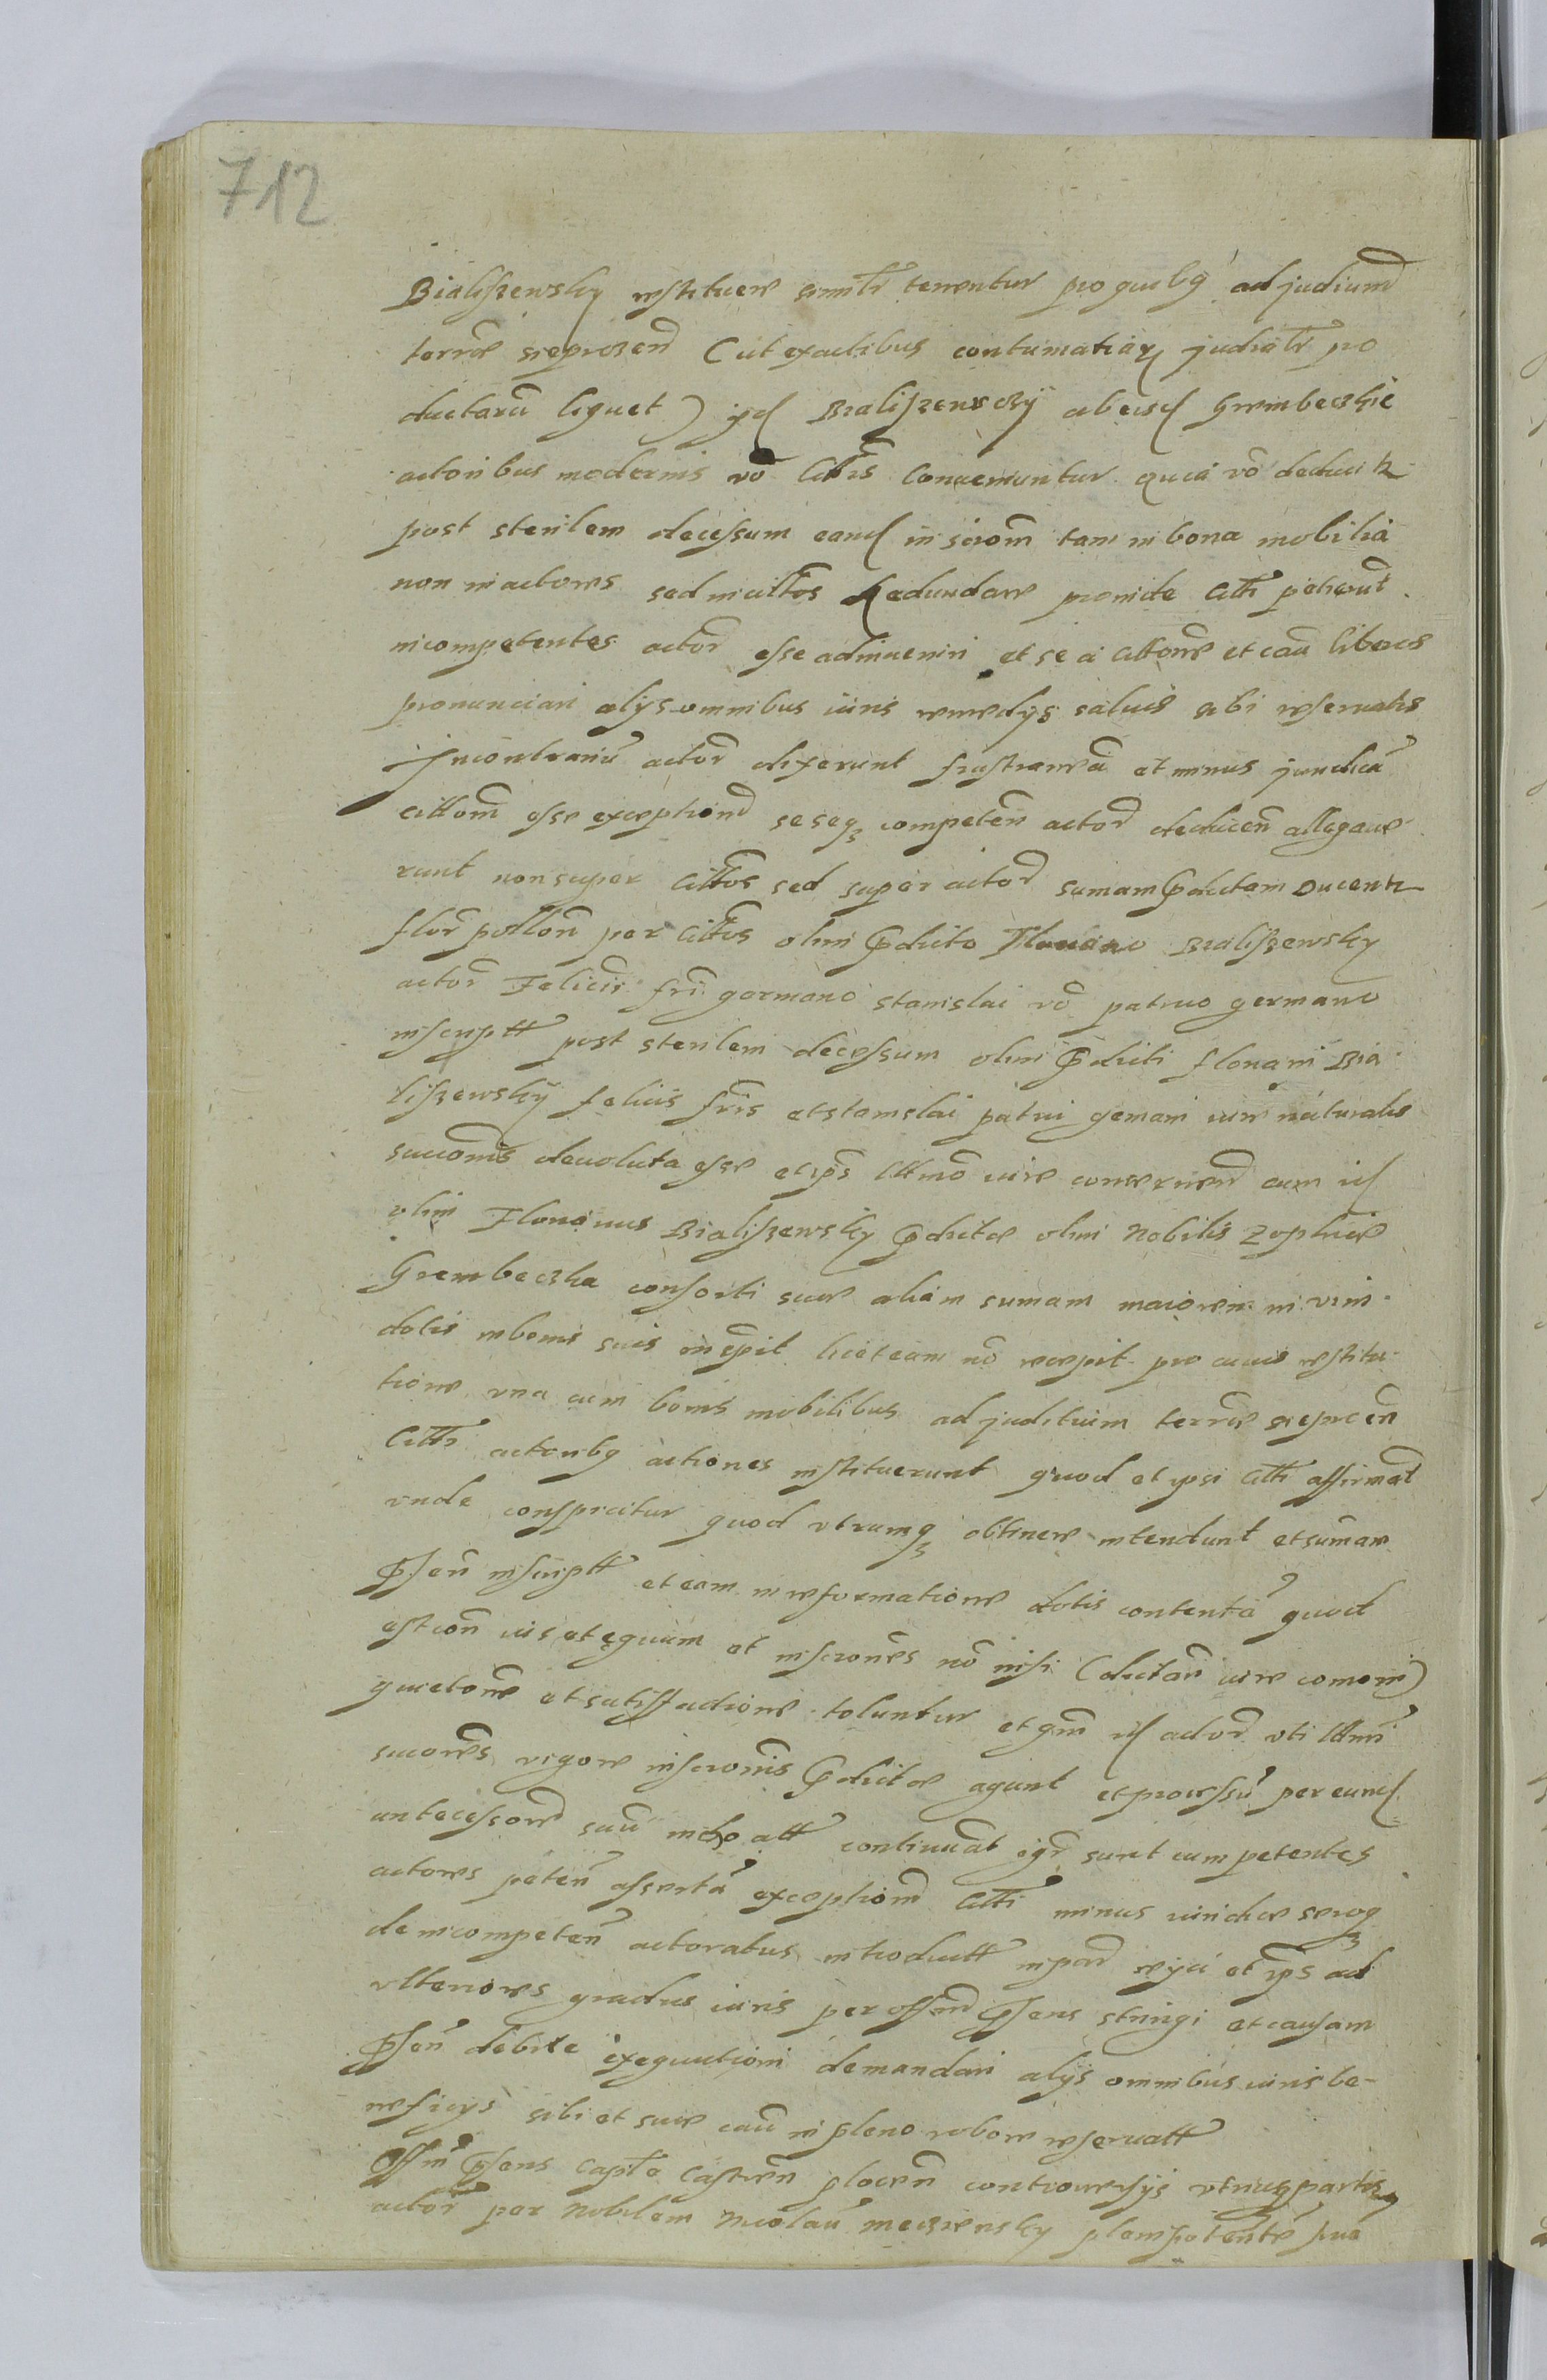 712
Bialiszewsky restituere similr tenentur pro quibg ad judicium
terrre srepczen (ut ex actibus contumatiarz judicialr pro
ductaru liquet) ijd Bialiszewczy ab eisd Grembeczkie
actoribus modernis vo Cittis Conveniuntur quia vo deducitz
post sterilem decessum eand inscriom tam in bona mobilia
non in actores sed in cittos Redundare proinde Citti petierunt
incompetentes actor esse adinveniri et se a cittone et cau liberos
pronunciari alijs omnibus iuris remedijs salvis sibi reservatis
In contrariu actor dixerunt frustranea et minus juridica
cittom esse exceptionem seseq competen actor deducen allegave
runt non super Cittos sed super actor sumam pdictam Ducentz
flor pollon per Cittos olim pdicto Floriano Bialiszewsky
actor Felicis fri germano Stanislai vo patruo germano
inscriptt post sterilem decessum olim pdicti Floriani Bia
liszewsky felicis fris et stanislai patrui germani iure naturalis
succomis devoluta esse et ips lttmo iure concernen cum id
olim Florianus Bialiszewsky pdictae olim Nobilis Zophiae
Grembeczka consorti suae aliam sumam maiorem in vim
dotis in bonis suis inscripsit licet eam no recepit pro cuius restitu
tione una cum bonis mobilibus ad juditium terrre srepcen
Citti actoribg actiones instituerunt quod et ipsi Citti affirmat
unde conspicitur quod utrumq obtinere intendunt et sumam
psen inscriptt et eam in reformatione dotis contenta quod
est con ius et equum et inscriones no nisi (dictan iure comoni)
quietone et satisfactione toluntur et qm id actor uti lttmi
succores vigore inscromis pdictae agunt et processu per eund
antecessore suu inchoatt continuat igr sunt competentes
actores peten asserta exceptiom Citti minus iuridice seroq
de incompeten actoratus introductt in par reijci et ips ad
ulteriores gradus iuris per offm psens stringi et causam
psen debite exequutioni demandari alijs omnibus iuris be-
neficijs sibi et suae cau in pleno robore reservatt
Offm psens Caple Castren plocen controversijs utriusq partis
actor per Nobilem Nicolau meczensky plenipotente sua